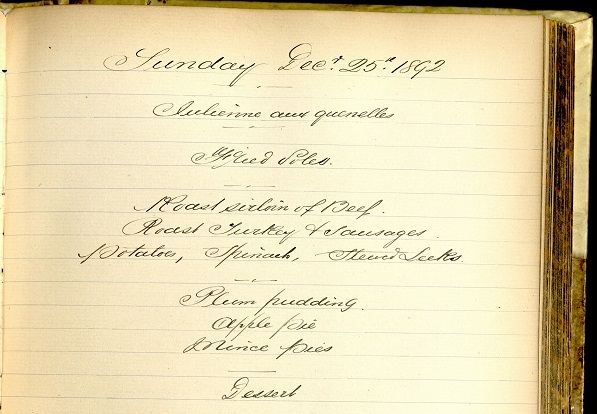 Sunday Decr. 25th 1892
Julienne aux quenelles
Fried Soles.
Roast sirloin of Beef.
Roast Turkey & Sausages.
Potatoes, Spinach, Stewed Leeks
Plum pudding.
Apple pie
Mince pies
Dessert